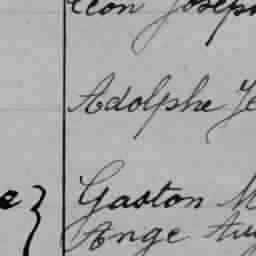 Léon Joseph
Adolphe Je
e } Gaston M
Ange Aug